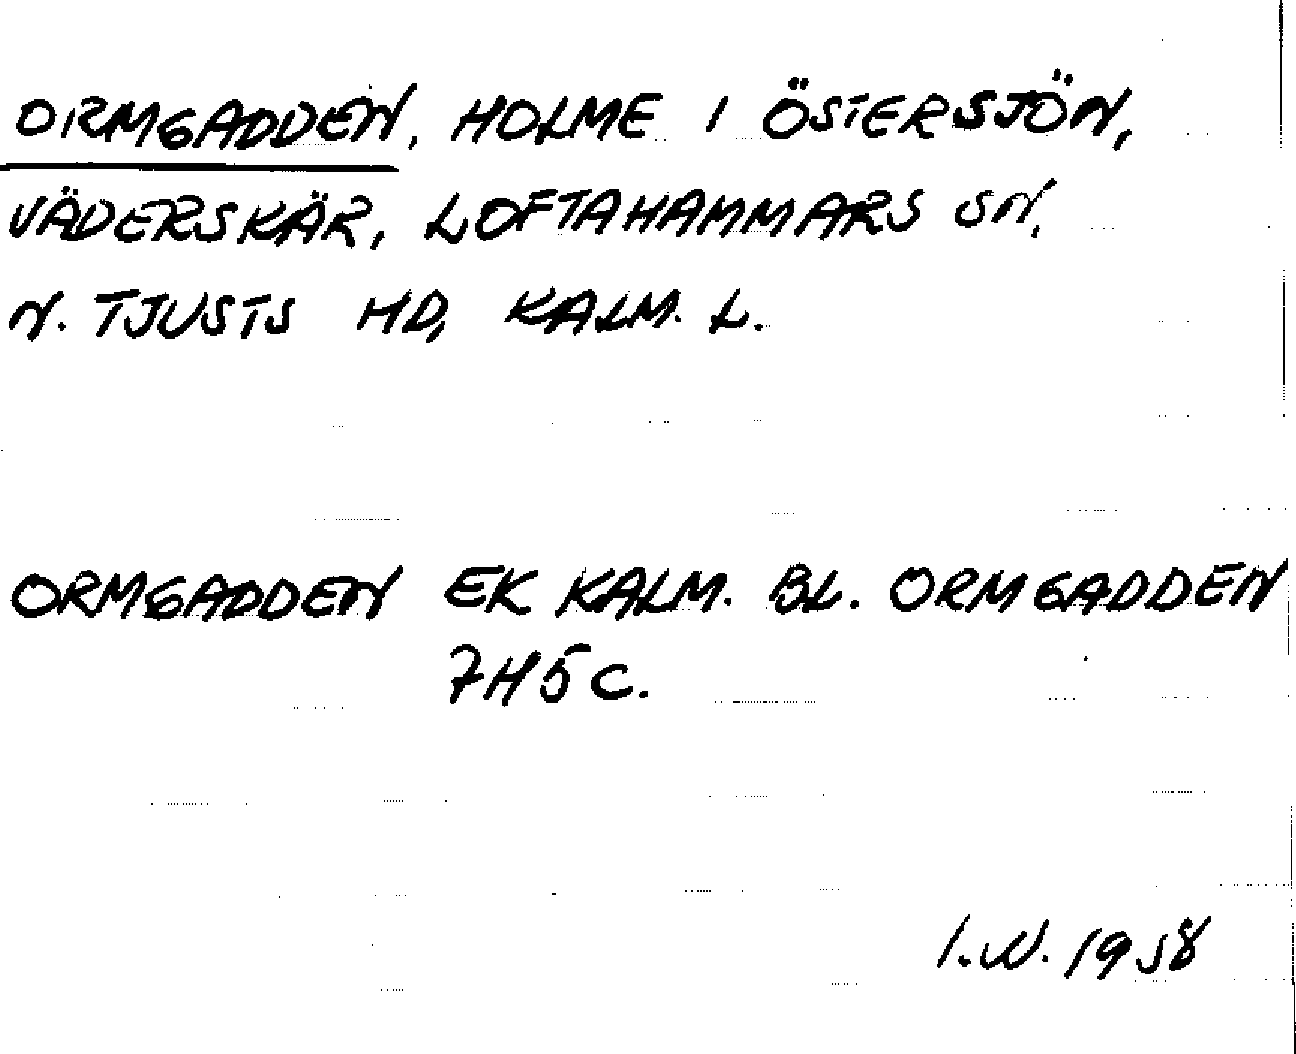 ORMGADDEN, HOLME I ÖSTERSJÖN,
VÄDERSKÄR, LOFTAHAMMARS SN,
N. TJUSTS HD, KALM. L.
ORMGADDEN EK KALM. BL. ORMGADDEN
7H5C.
I.W. 1958